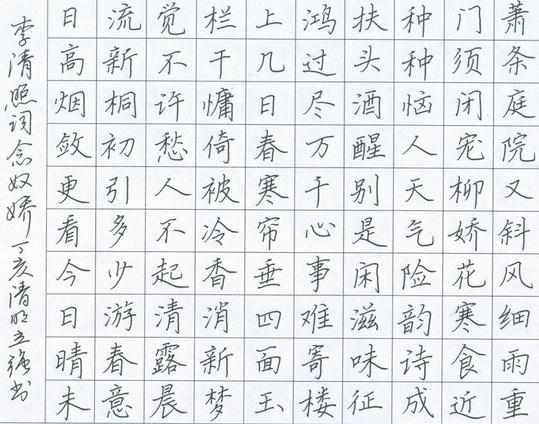 萧条庭院又斜风细雨重
门须闭宠柳娇花寒食近
种种恼人天气险韵诗成
扶头酒醒别是闲滋味征
鸿过尽万千心事难寄楼
上几日春寒帘垂四面玉
栏干慵倚被冷香消新梦
觉不许愁人不起清露晨
流新桐初引多少游春意
日高烟敛更看今日晴未
李清照词念奴娇 丁亥清明立强书